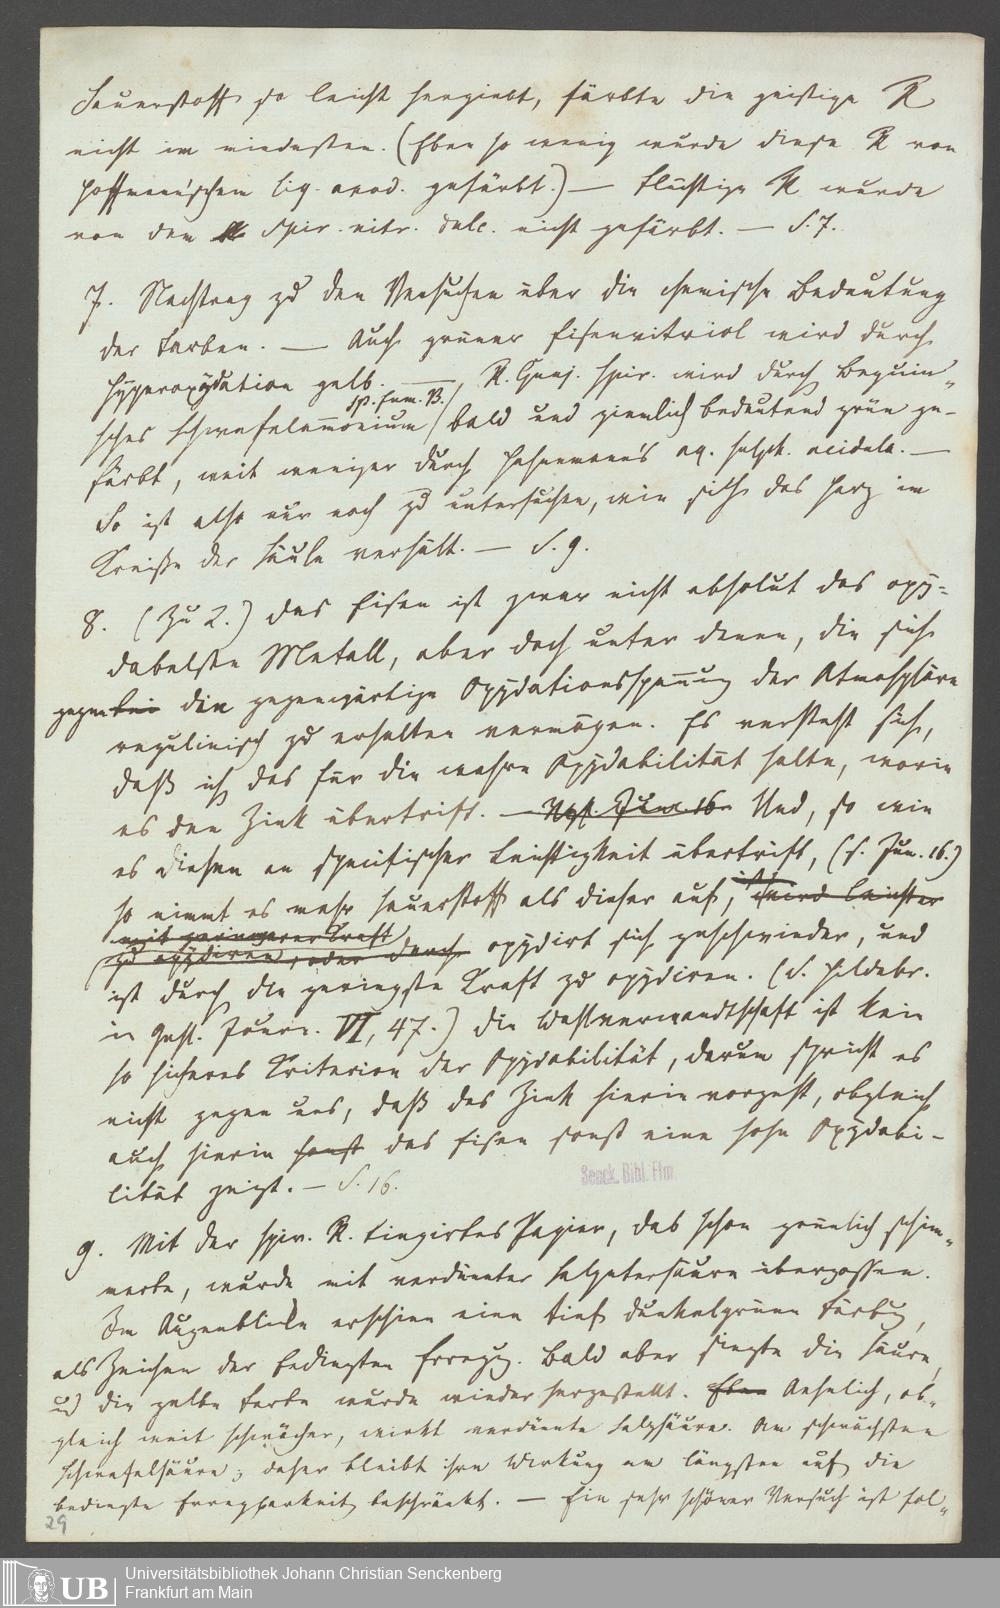 Sauerstoff so leicht hergiebt, färbte die geistige R
nicht im mindesten. (Eben so wenig wurde diese R von
Hoffmann'schem liq. anod. gefärbt.) — Flüchtige R wurde
von dem Spir. nitr. dulc. nicht gefärbt. — S. 7.
7. Nachtrag zu den Versuchen über die chemische Bedeutung
der Farben. — Auch grüner Eisenvitriol wird durch
Hyperoxydation gelb. — R. Guaj. spir. wird durch Beguin„
sches Schwefelam̅onium / sp. fum. B. / bald und ziemlich bedeutend grün ge-
färbt, weit weniger durch Hahnemann's aq. sulph. acidula. —
So ist also nur noch zu untersuchen, wie sich das Harz im
Kreise der Säule verhält. — S. 9.
8. (Zu 2.) Das Eisen ist zwar nicht absolut das oxy-
dabelste Metall, aber doch unter denen, die sich
gegen bei die gegenwärtige Oxydationsspan̅ung der Atmosphäre
regulinisch zu erhalten vermögen. Es versteht sich,
daß ich das für die wahre Oxydabilität halte, worin
es den Zink übertrift. — Vgl. Jun. 16. Und, so wie
es diesen an specifischer Leichtigkeit übertrift, (s. Jun. 16.)
so nimmt es mehr Sauerstoff als dieser auf, ist wird leichter
mit geringerer Kraft
zu oxydiren, oder durch oxydirt sich geschwinder, und
ist durch die geringste Kraft zu oxydiren. (S. Hildebr.
in Gehl. Journ. VI, 47.) Die Wahlverwandtschaft ist kein
so sicheres Kriterion der Oxydabilität, darum spricht es
nicht gegen uns, daß das Zink hierin vorgeht, obgleich
auch hierin sonst das Eisen sonst eine hohe Oxydabi-
lität zeigt. — S. 16.
Senck. Bibl. Ffm
9. Mit der spir. R. tingirtes Papier, das schon grünlich schim„
merte, wurde mit verdünnter Salpetersäure übergossen.
Im Augenblick erschien eine tief dunkelgrüne Färbg,
als Zeichen der bedingten Erregg. Bald aber siegte die Säure,
u) die gelbe Farbe wurde wieder hergestellt. Eben Aehnlich, ob„
gleich weit schwächer, wirkt verdünnte Salzsäure. Am schwächsten
Schwefelsäure; daher bleibt ihre Wirkung am längsten auf die
bedingte Erregbarkeit beschränkt. — Ein sehr schöner Versuch ist fol„
29
UB
Universitätsbibliothek Johann Christian Senckenberg
Frankfurt am Main